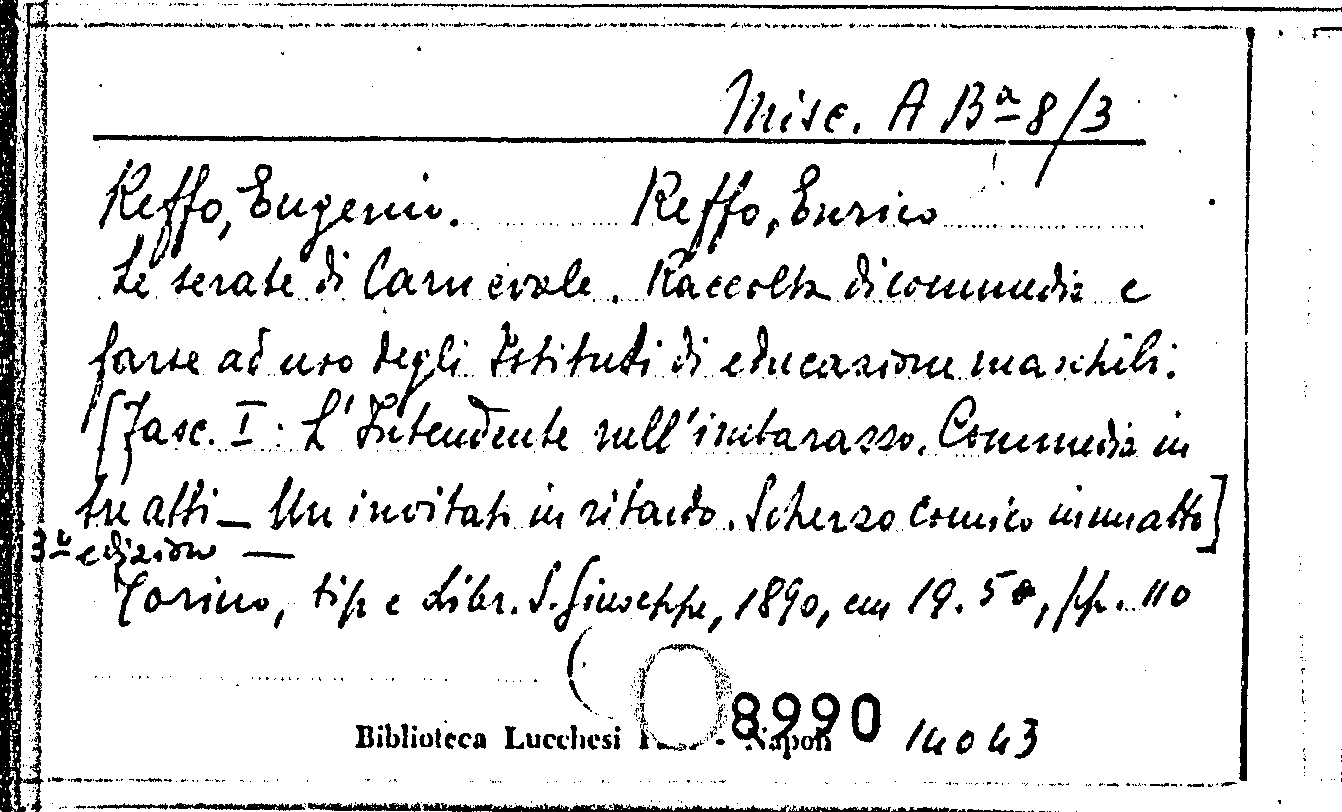 Misc. A Bª 8/3
Reffo, Eugenio. Reffo, Enrico
Le serate di Carnevale. Raccolta di commedie e
farse ad uso degli Istituti di educazione maschili.
[Fasc. I: L'Intendente nell'imbarazzo. Commedia in
tre atti — Un invitato in ritardo. Scherzo comico in un atto]
3ª edizione —
Torino, tip e Libr. S. Giuseppe, 1890, cm 19.5, pp. 110
8990
Biblioteca Lucchesi - Napoli 14043